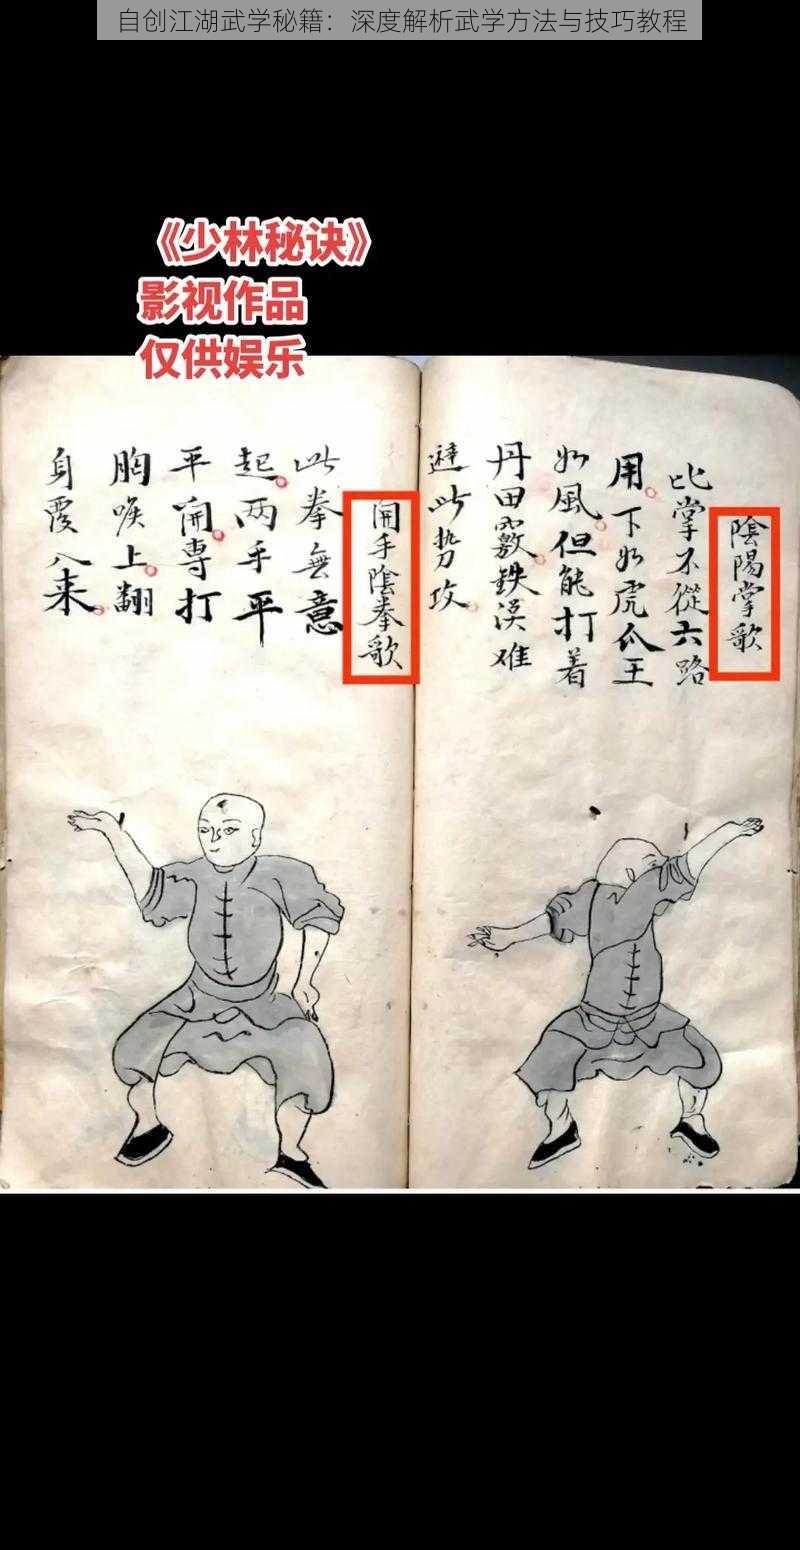 自创江湖武学秘籍：深度解析武学方法与技巧教程
《少林秘诀》
影视作品
仅供娱乐
陰陽掌歌
比掌不從六路
用下如虎爪王
如風但能打着
丹田竅鉄漢难
避此势攻
開手陰拳歌
此拳無意
起两手平
平開專打
胸喉上翻
身覆八来